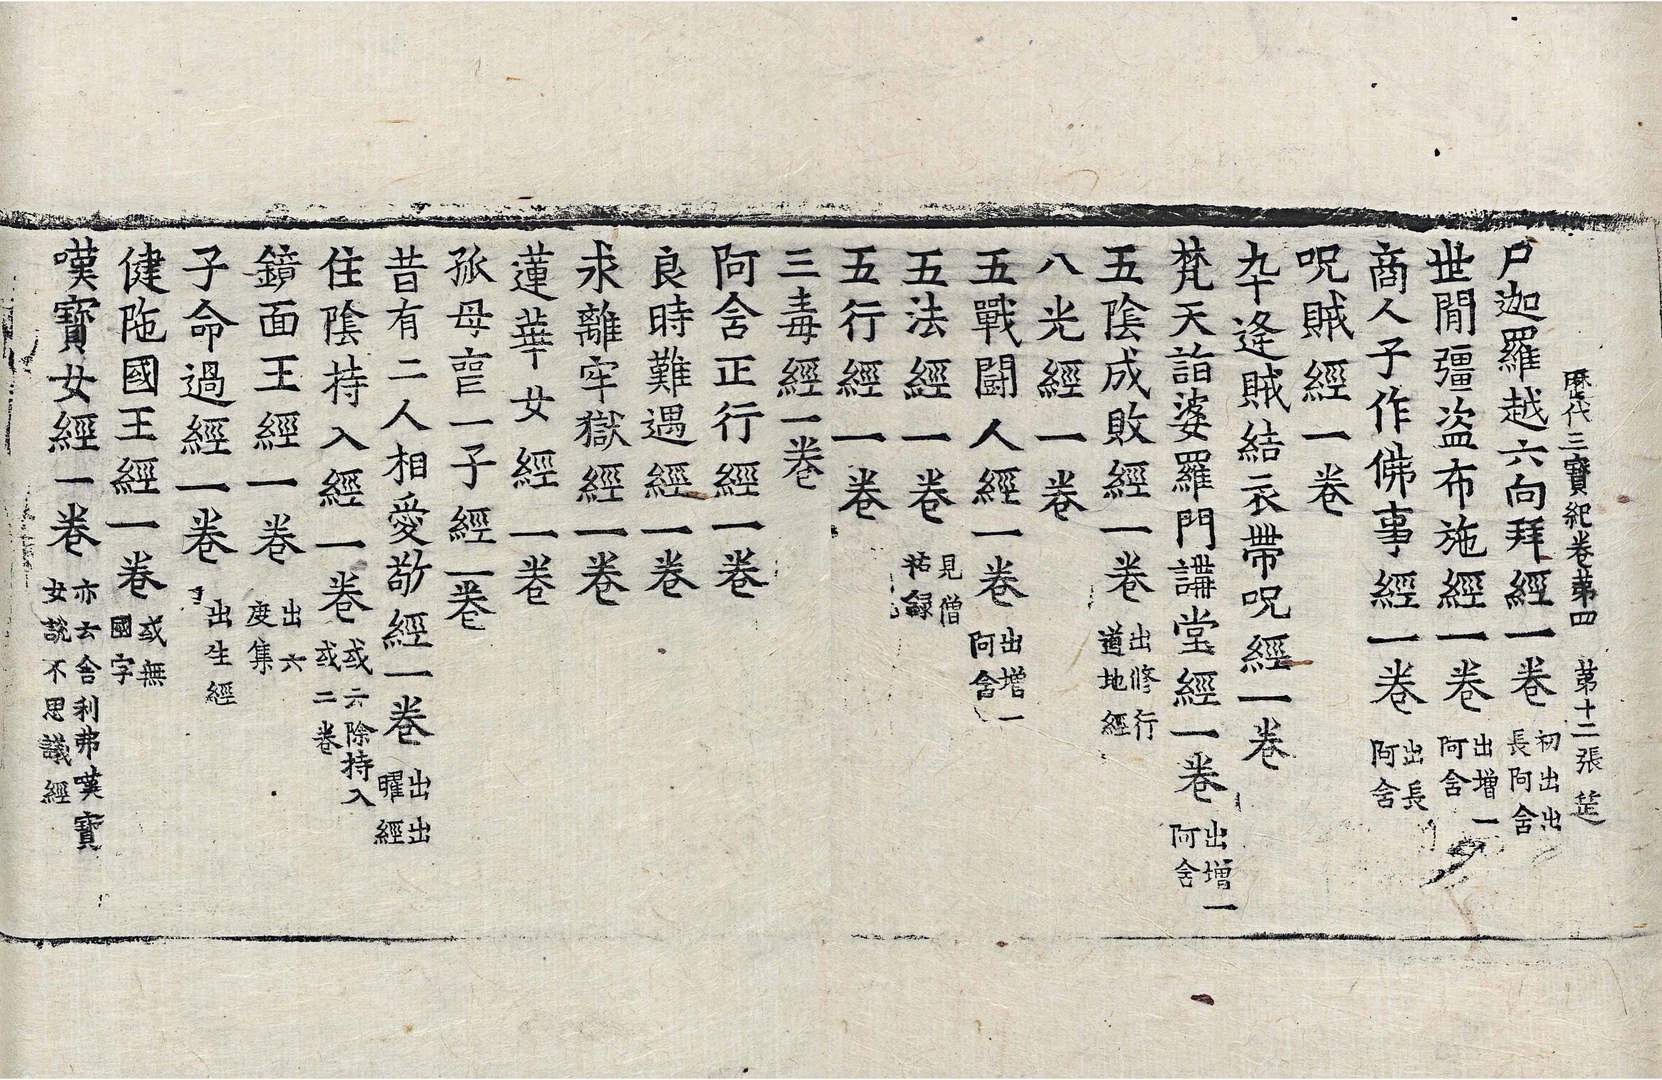 歷代三寶紀卷第四 第十二張
尸迦羅越六向拜經一卷 初出出長阿含
世間彊盜布施經一卷 出增一阿含
商人子作佛事經一卷 出長阿含
呪賊經一卷
九十逢賊結衣帶呪經一卷
梵天詣婆羅門講堂經一卷 出增一阿含
五陰成敗經一卷 出修行道地經
八光經一卷
五戰鬪人經一卷 出增一阿含
五法經一卷 見僧祐録
五行經一卷
三毒經一卷
阿含正行經一卷
良時難遇經一卷
求離牢獄經一卷
蓮華女經一卷
孤母喪一子經一卷
昔有二人相愛敬經一卷 出出曜經
住陰持入經一卷 或云除持入或二卷
鏡面王經一卷 出六度集
子命過經一卷 出生經
健陁國王經一卷 或無國字
嘆寶女經一卷 亦云舍利弗嘆寶女說不思議經